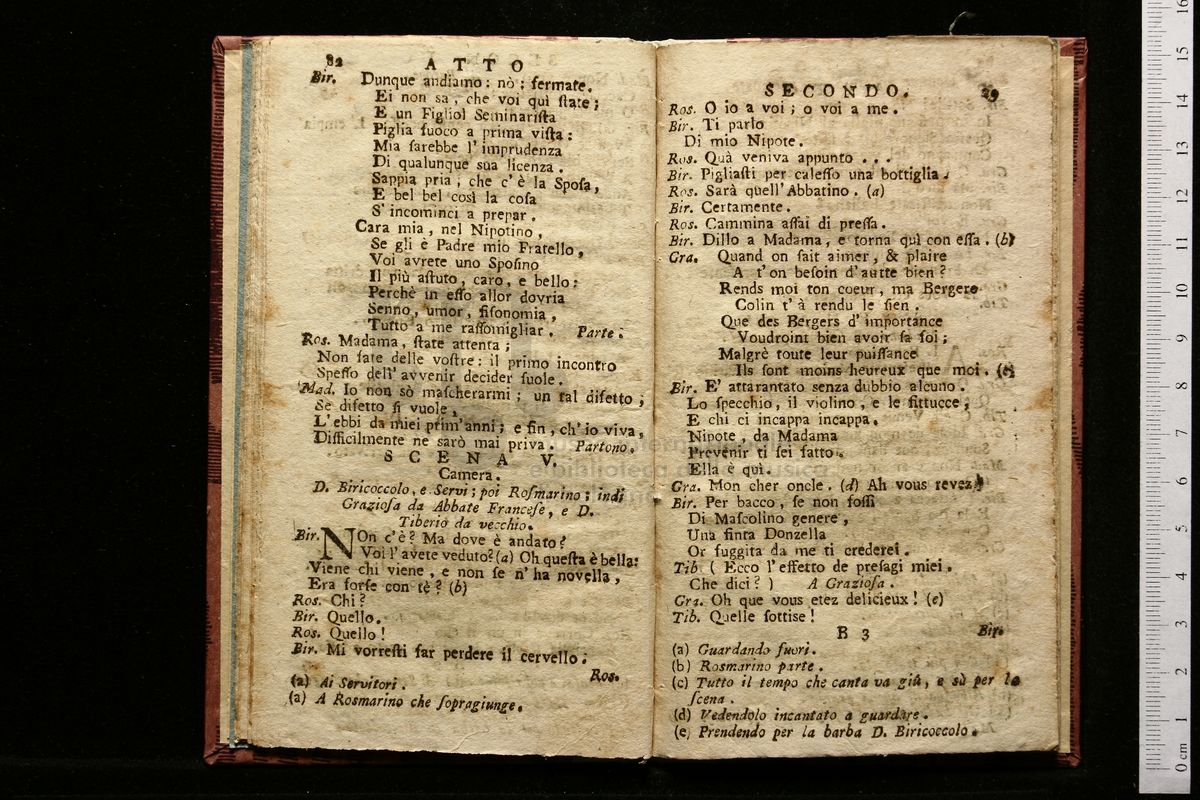 82
ATTO
Bir. Dunque andiamo: nò: fermate.
Ei non sa, che voi quì ſtate;
E un Figliol Seminariſta
Piglia fuoco a prima viſta:
Mia ſarebbe l'imprudenza
Di qualunque sua licenza.
Sappia pria, che c'è la Spoſa,
E bel bel così la coſa
S'incominci a prepar.
Cara mia, nel Nipotino,
Se gli è Padre mio Fratello,
Voi avrete uno Spoſino
Il più aſtuto, caro, e bello:
Perchè in eſſo allor dovria
Senno, umor, fiſonomia,
Tutto a me raſſomigliar. Parte.
Ros. Madama, ſtate attenta;
Non fate delle voſtre: il primo incontro
Speſſo dell'avvenir decider ſuole.
Mad. Io non sò maſcherarmi; un tal difetto;
Se difetto ſi vuole,
L'ebbi da miei prim'anni; e fin, ch'io viva,
Difficilmente ne sarò mai priva. Partono.
SCENA V.
Camera.
D. Biricoccolo, e Servi; poi Roſmarino; indi
Grazioſa da Abbate Franceſe, e D.
Tiberio da vecchio.
Bir. NOn c'è? Ma dove è andato?
Voi l'avete veduto? (a) Oh queſta è bella:
Viene chi viene, e non ſe n'ha novella,
Era forſe con tè? (b)
Ros. Chi?
Bir. Quello.
Ros. Quello!
Bir. Mi vorreſti far perdere il cervello:
Ros.
(a) Ai Servitori.
(a) A Rosmarino che ſopragiunge.
SECONDO. 29
Ros. O io a voi; o voi a me.
Bir. Ti parlo
Di mio Nipote.
Ros. Quà veniva appunto ...
Bir. Pigliaſti per caleſſo una bottiglia.
Ros. Sarà quell'Abbatino. (a)
Bir. Certamente.
Ros. Cammina aſſai di preſſa.
Bir. Dillo a Madama, e torna quì con eſſa. (b)
Gra. Quand on ſait aimer, & plaire
A t'on beſoin d'autte bien?
Rends moi ton coeur, ma Bergere
Colin t'à rendu le ſien.
Que des Bergers d'importance
Voudroint bien avoir ſa foi;
Malgrè toute leur puiſſance
Ils ſont moins heureux que moi. (c)
Bir. E' attarantato senza dubbio alcuno.
Lo ſpecchio, il violino, e le fittucce,
E chi ci incappa incappa.
Nipote, da Madama
Prevenir ti ſei fatto.
Ella è quì.
Gra. Mon cher oncle. (d) Ah vous revez!
Bir. Per bacco, ſe non foſſi
Di Maſcolino genere,
Una finta Donzella
Or fuggita da me ti crederei.
Tib. ( Ecco l'effetto de preſagi miei.
Che dici? ) A Grazioſa.
Gra. Oh que vous etez delicieux! (e)
Tib. Quelle ſottise!
B 3 Bir.
(a) Guardando fuori.
(b) Rosmarino parte.
(c) Tutto il tempo che canta va giù, e sù per la
ſcena.
(d) Vedendolo incantato a guardare.
(e) Prendendo per la barba D. Biricoccolo.